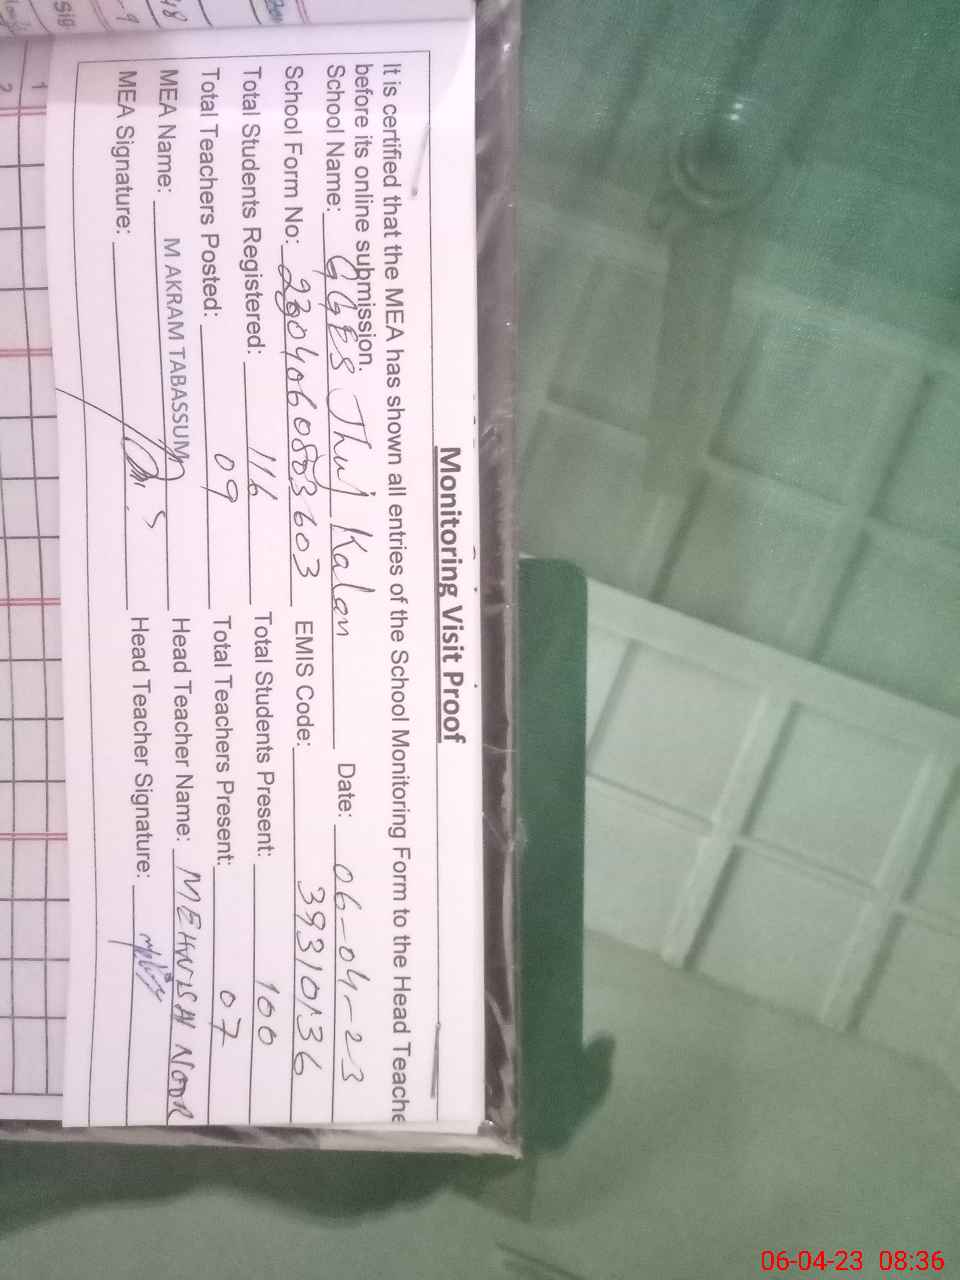 Monitoring Visit Proof
It is certified that the MEA has shown all entries of the School Monitoring Form to the Head Teache
before its online submission.
School Name: GGES Thuj Kalan Date: 06-04-23
School Form No: EMIS Code: 39310136
Total Students Registered: 116 Total Students Present: 100
Total Teachers Posted: 09 Total Teachers Present: 07
MEA Name: M AKRAM TABASSUM Head Teacher Name: MEHWISH NOOR
MEA Signature: Head Teacher Signature:
1
2
48
-9
Sig
06-04-23 08:36